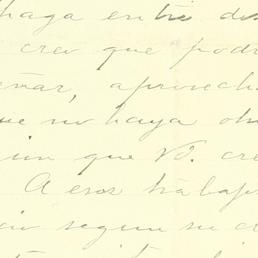 haga entre dos
creo que podr
eñar, aprovech
ue no haya obs
ún que Vd. cre
A esos trabaj
segun su cr